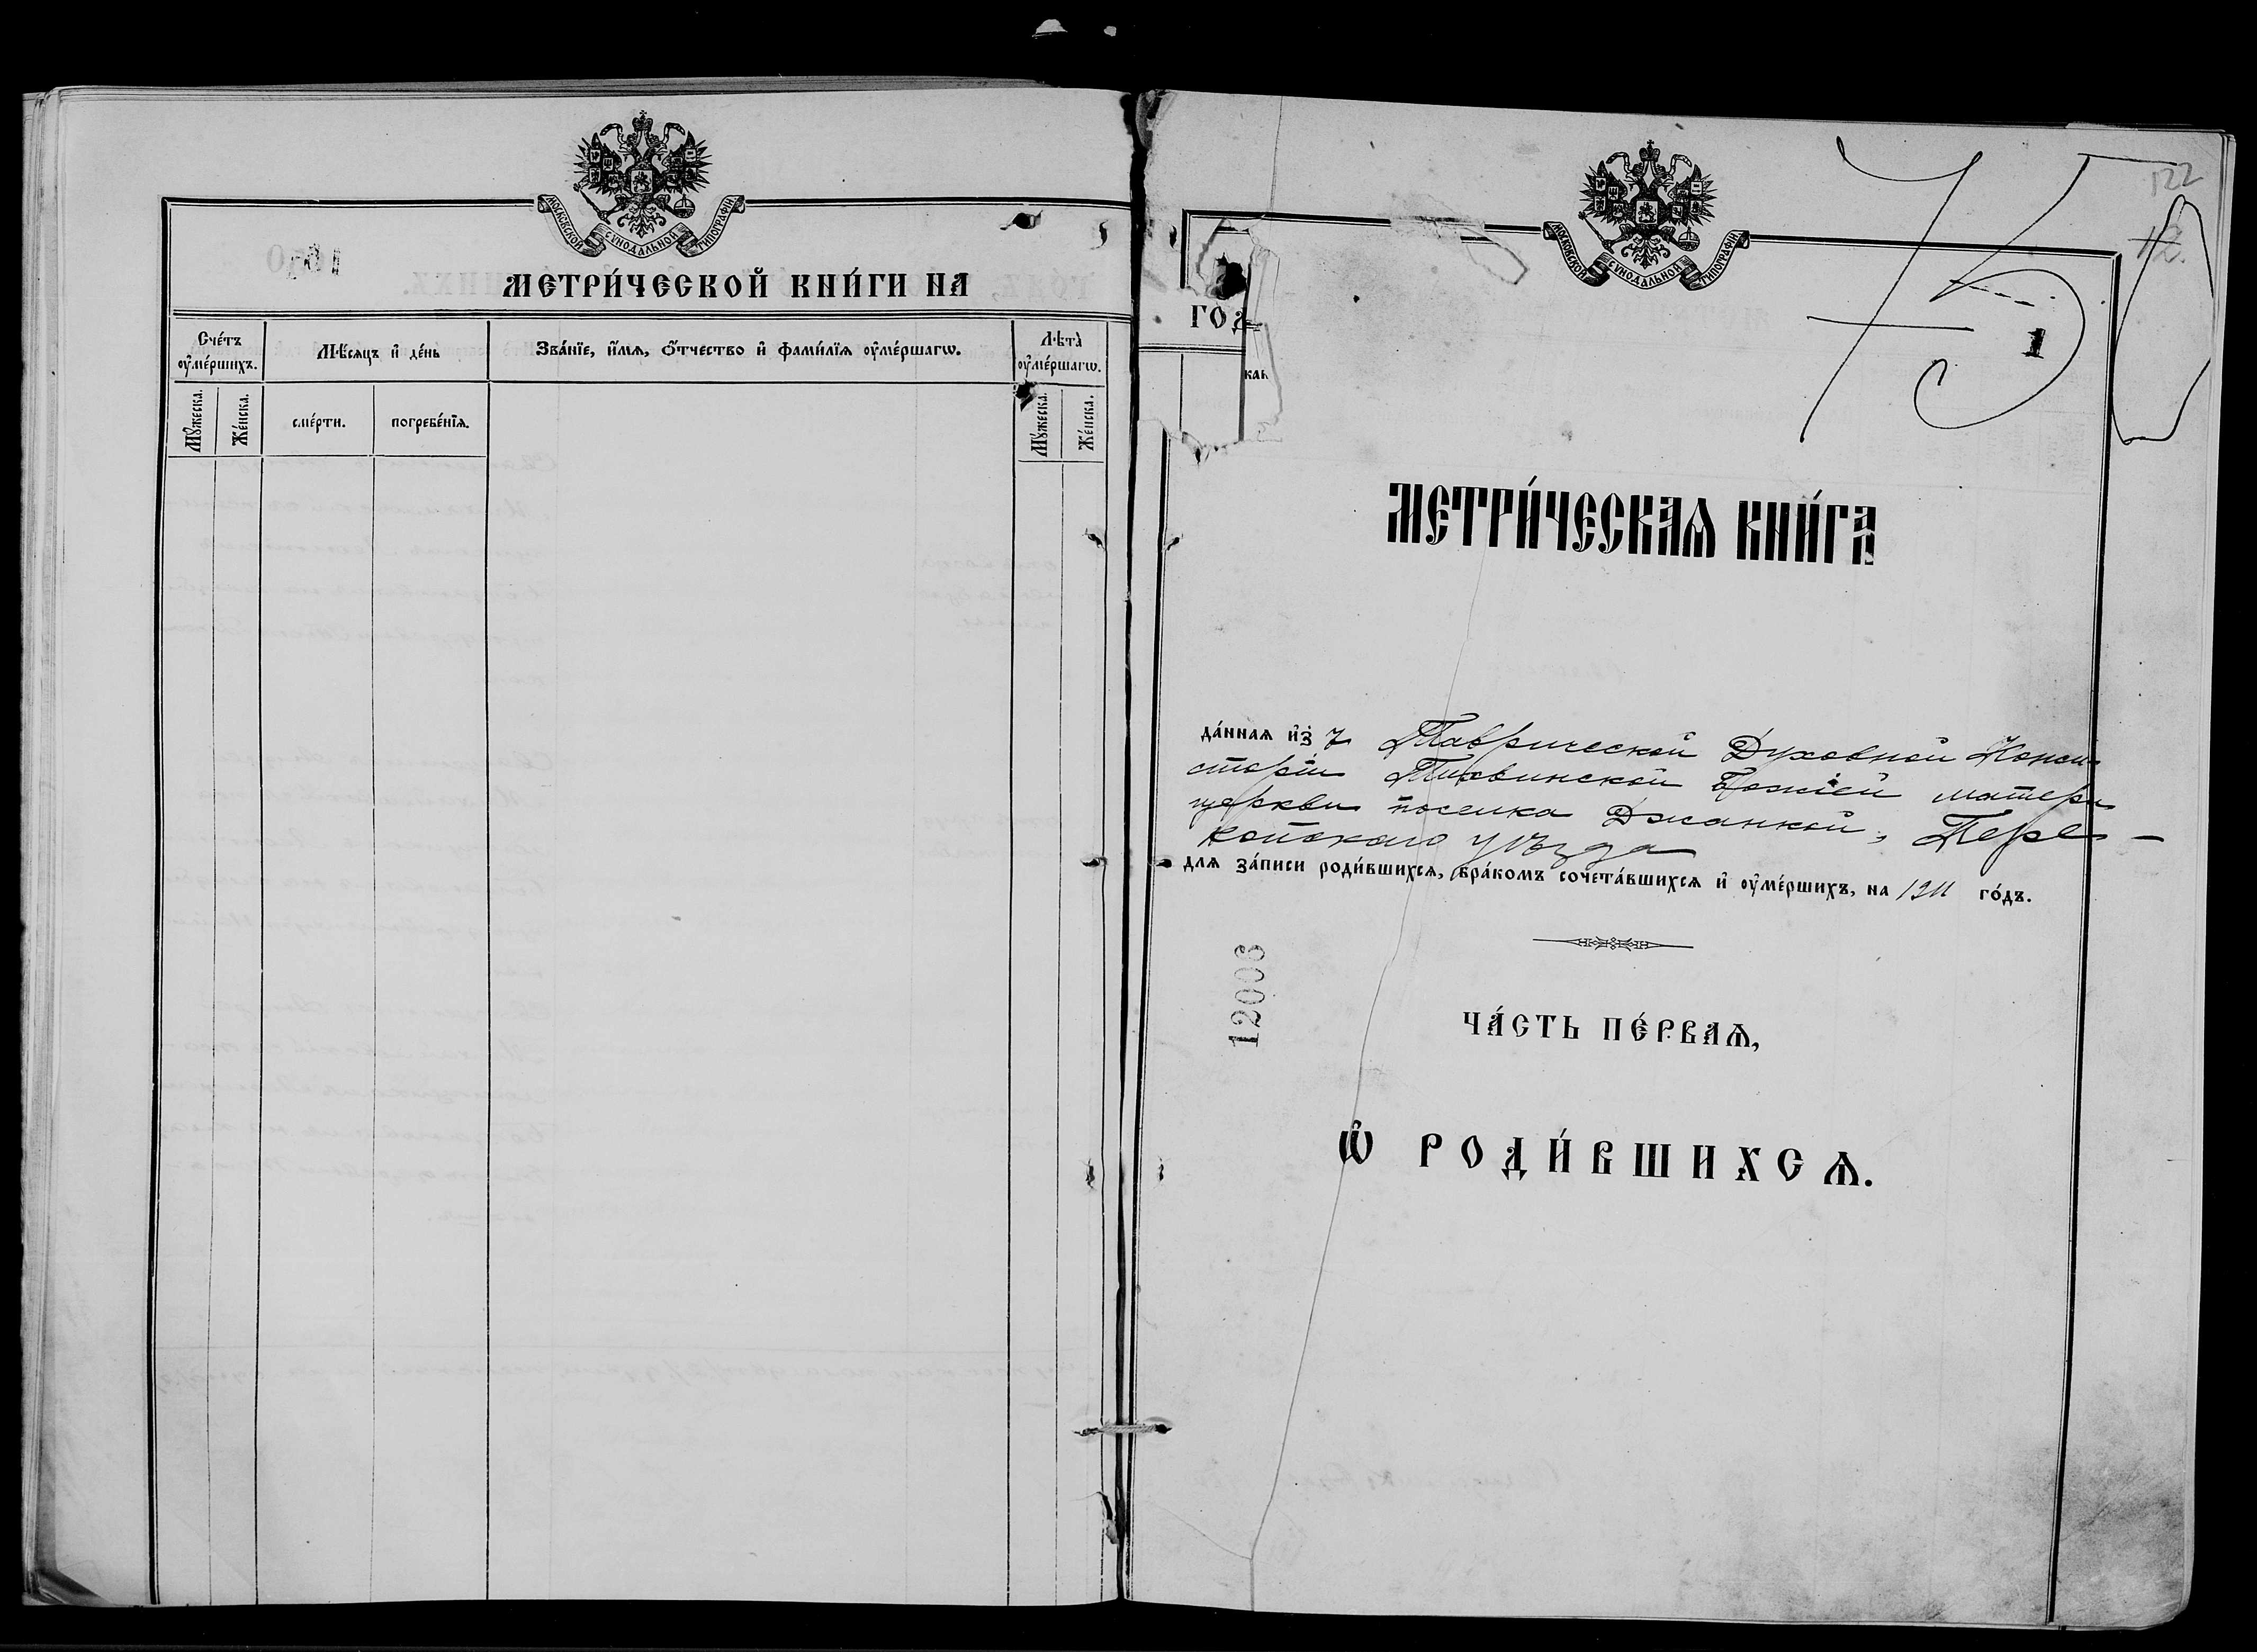 МОСКОВСКОЙ СѴНОДАЛЬНОЙ ТИПОГРАФІИ
МЕТРИ́ЧЕСКОЙ КНИ́ГИ НА
Сче́тъ ᲂу҆ме́ршихъ.
Мѣ́сяцъ и҆ де́нь
Зва́нїе, и҆́мѧ, ѻ҆́тчество и҆ фами́лїѧ ᲂу҆ме́ршагѡ.
Лѣта̀ ᲂу҆ме́ршагѡ.
Мꙋ́жеска.
Же́нска.
сме́рти.
погребе́нїѧ.
Мꙋ́жеска.
Же́нска.
МОСКОВСКОЙ СѴНОДАЛЬНОЙ ТИПОГРАФІИ
ГОД
122
12.
75
1
МЕТРИ́ЧЕСКАѦ КНИ́ГА
да́ннаѧ и҆з̾ Таврической Духовной Конси
сторіи Тихвинской Божіей матери
церкви поселка Джанкой, Пере-
копскаго уѣзда
для за́писи роди́вшихсѧ, бра́комъ сочета́вшихсѧ и҆ ᲂу҆ме́ршихъ, на 1911 го́дъ.
12006
ЧА́СТЬ ПЕ́РВАѦ,
Ѡ҆ РОДИ́ВШИХСѦ.